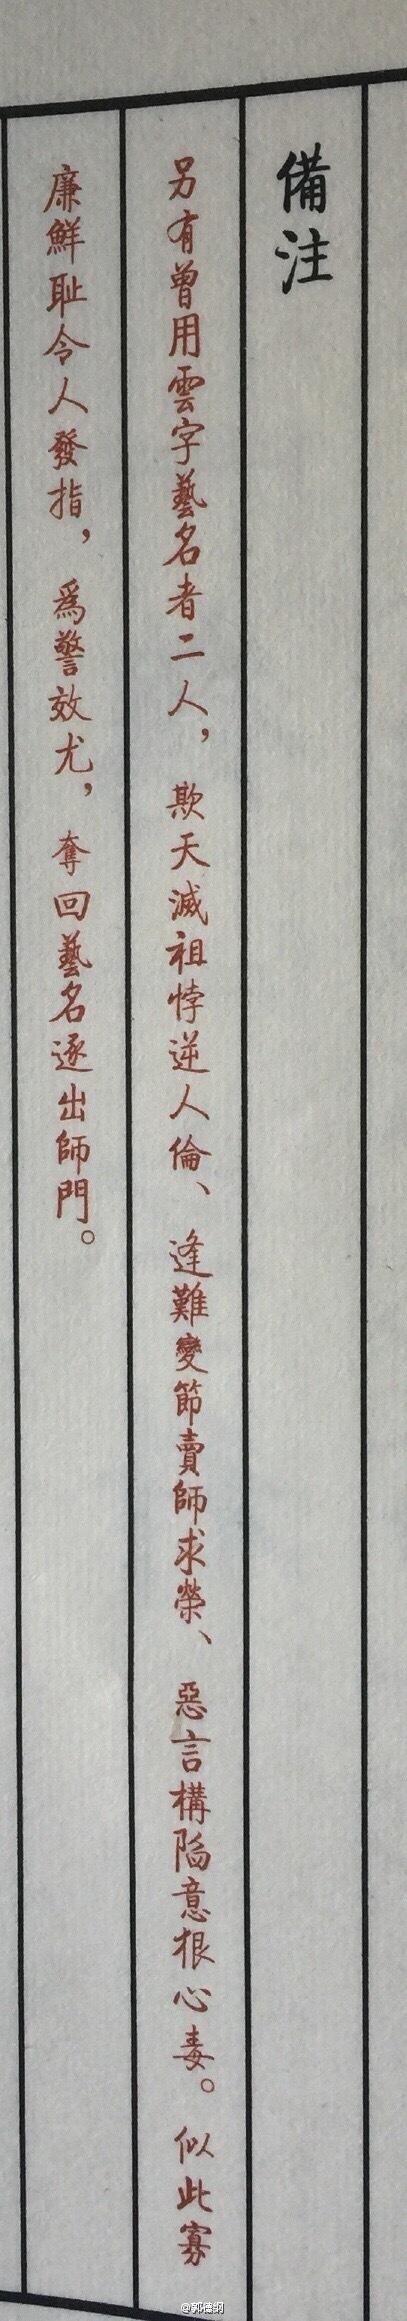 備注
另有曾用雲字藝名者二人，欺天滅祖悖逆人倫、逢難變節賣師求榮、惡言構陷意根心毒。似此寡
廉鮮耻令人發指，爲警效尤，奪回藝名逐出師門。
@郭德纲